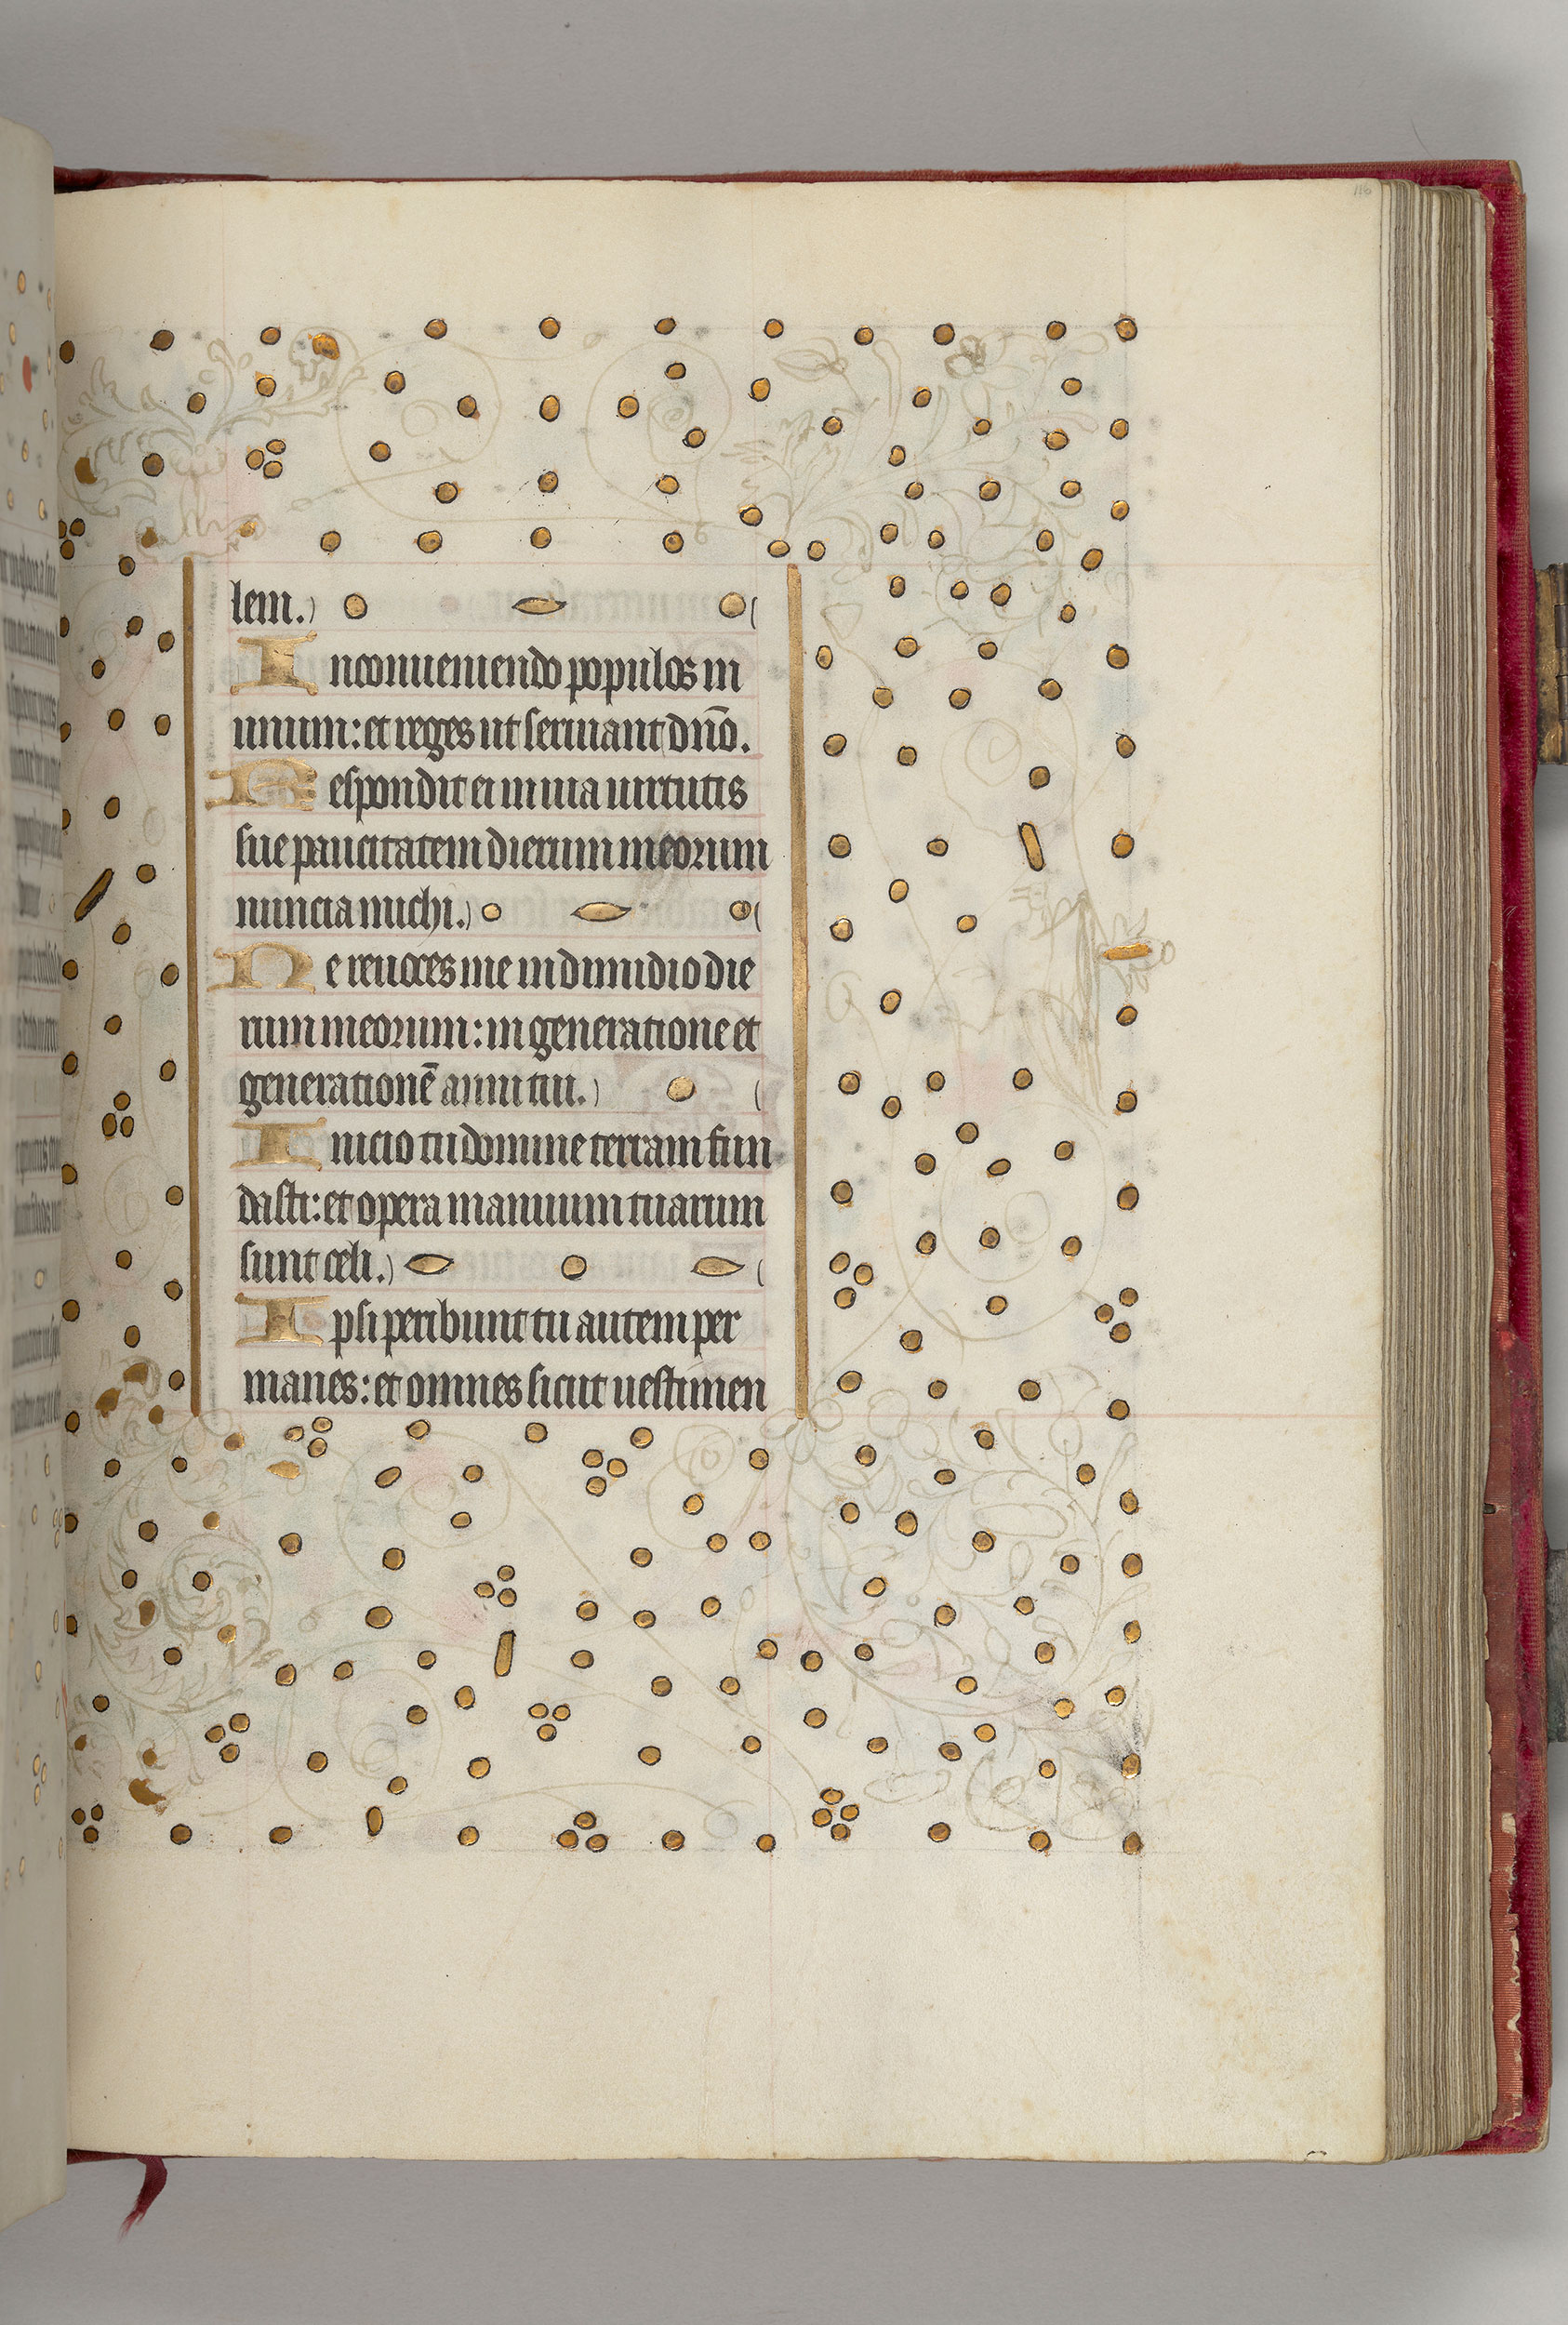 116
lem.
In conueniendo populos in
unum: et reges ut seruiant dño.
Respondit ei in uia uirtutis
sue paucitatem dierum meorum
nuncia michi.
Ne reuoces me in dimidio die
rum meorum: in generatione et
generationē anni tui.
Inicio tu domine terram fun
dasti: et opera manuum tuarum
sunt celi.
Ipsi peribunt tu autem per
manes: et omnes sicut uestimen